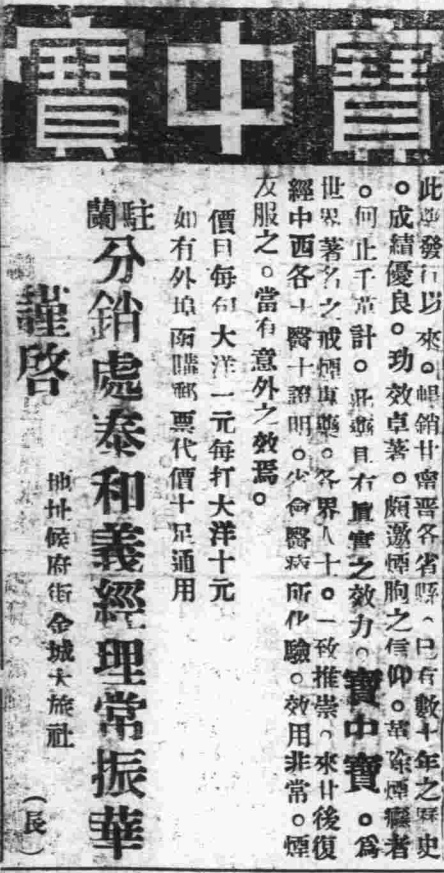 寶中寶
此藥發行以來。暢銷甘甯晉各省縣。已有數十年之歷史
。成績優良。功效卓著。頗邀煙胞之信仰。革除煙癮者
。何止千萬計。此藥具有真實之效力。寶中寶。為
世界著名之戒煙專藥。各界人士。一致推崇。來甘後復
經中西各大醫士證明。省會醫院所化驗。效用非常。煙
友服之。當有意外之效焉。
價目每包大洋一元每打大洋十元
如有外埠函購郵票代價十足通用
駐蘭分銷處泰和義經理常振華
謹啓
地址候府街金城大旅社
（長）